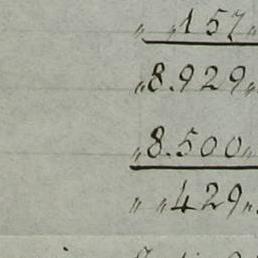 " " 157 "
" 8.929 "
" 8.500 "
" " 429 "